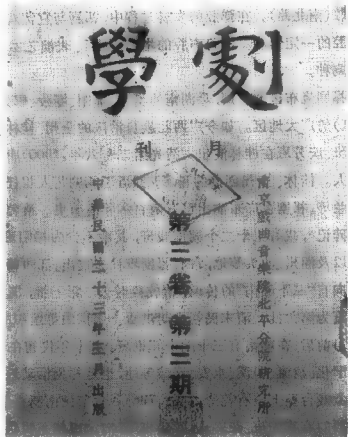 劇學
月刊
南京戲曲音樂院北平分院研究所
第三卷第三期
中華民國二十三年三月出版